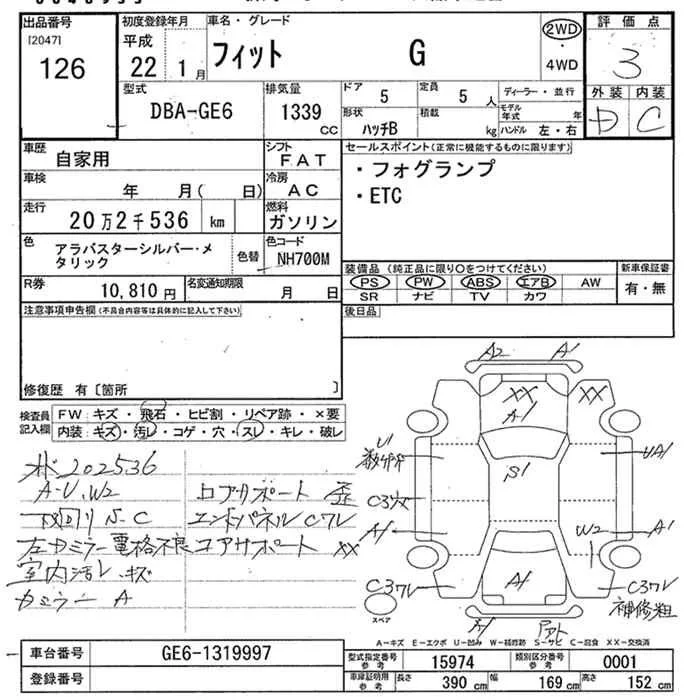 出品番号
[2047]
126
初度登録年月
平成
22 1月
車名・グレード
フィット G
2WD
・
4WD
評価点
3
外装 内装
D C
型式
DBA-GE6
排気量
1339
cc
ドア 5
定員 5 人
形状 ハッチB
積載 kg
ディーラー・並行
モデル年式 年
ハンドル 左・右
車歴
自家用
シフト
FAT
セールスポイント(正常に機能するものに限ります)
・フォグランプ
・ETC
車検
年 月( 日)
冷房
AC
走行
20万2千536 km
燃料
ガソリン
色
アラバスターシルバー・メタリック
色替
色コード
NH700M
R券
10,810円
名変通知期限
月 日
装備品(純正品に限り○をつけてください)
PS PW ABS エアB AW
SR ナビ TV カワ
新車保証書
有・無
注意事項申告欄(不具合内容等は具体的に記入して下さい)
後日品
修復歴 有〔箇所 〕
検査員記入欄
FW: キズ・飛石・ヒビ割・リペア跡・×要
内装: キズ・汚レ・コゲ・穴・スレ・キレ・破レ
202536
A-U.W2
下回り S-C
左カミラー電格不良
室内汚レ.キズ
カミラー A
コアサポート 歪
エンドパネル Cワレ
コアサポート XX
A2 A1
XX XX
A1
U1
S1
UA1
A1
W2 A1
Cワレ
A1
Cワレ
補修粗
スペア
A1
A-キズ E-エクボ U-凹み W-補修跡 S-サビ C-腐食 XX-交換済
車台番号
GE6-1319997
登録番号
型式指定番号
参考
15974
類別区分番号
参考
0001
車庫証明用
参考
長さ 390 cm
幅 169 cm
高さ 152 cm